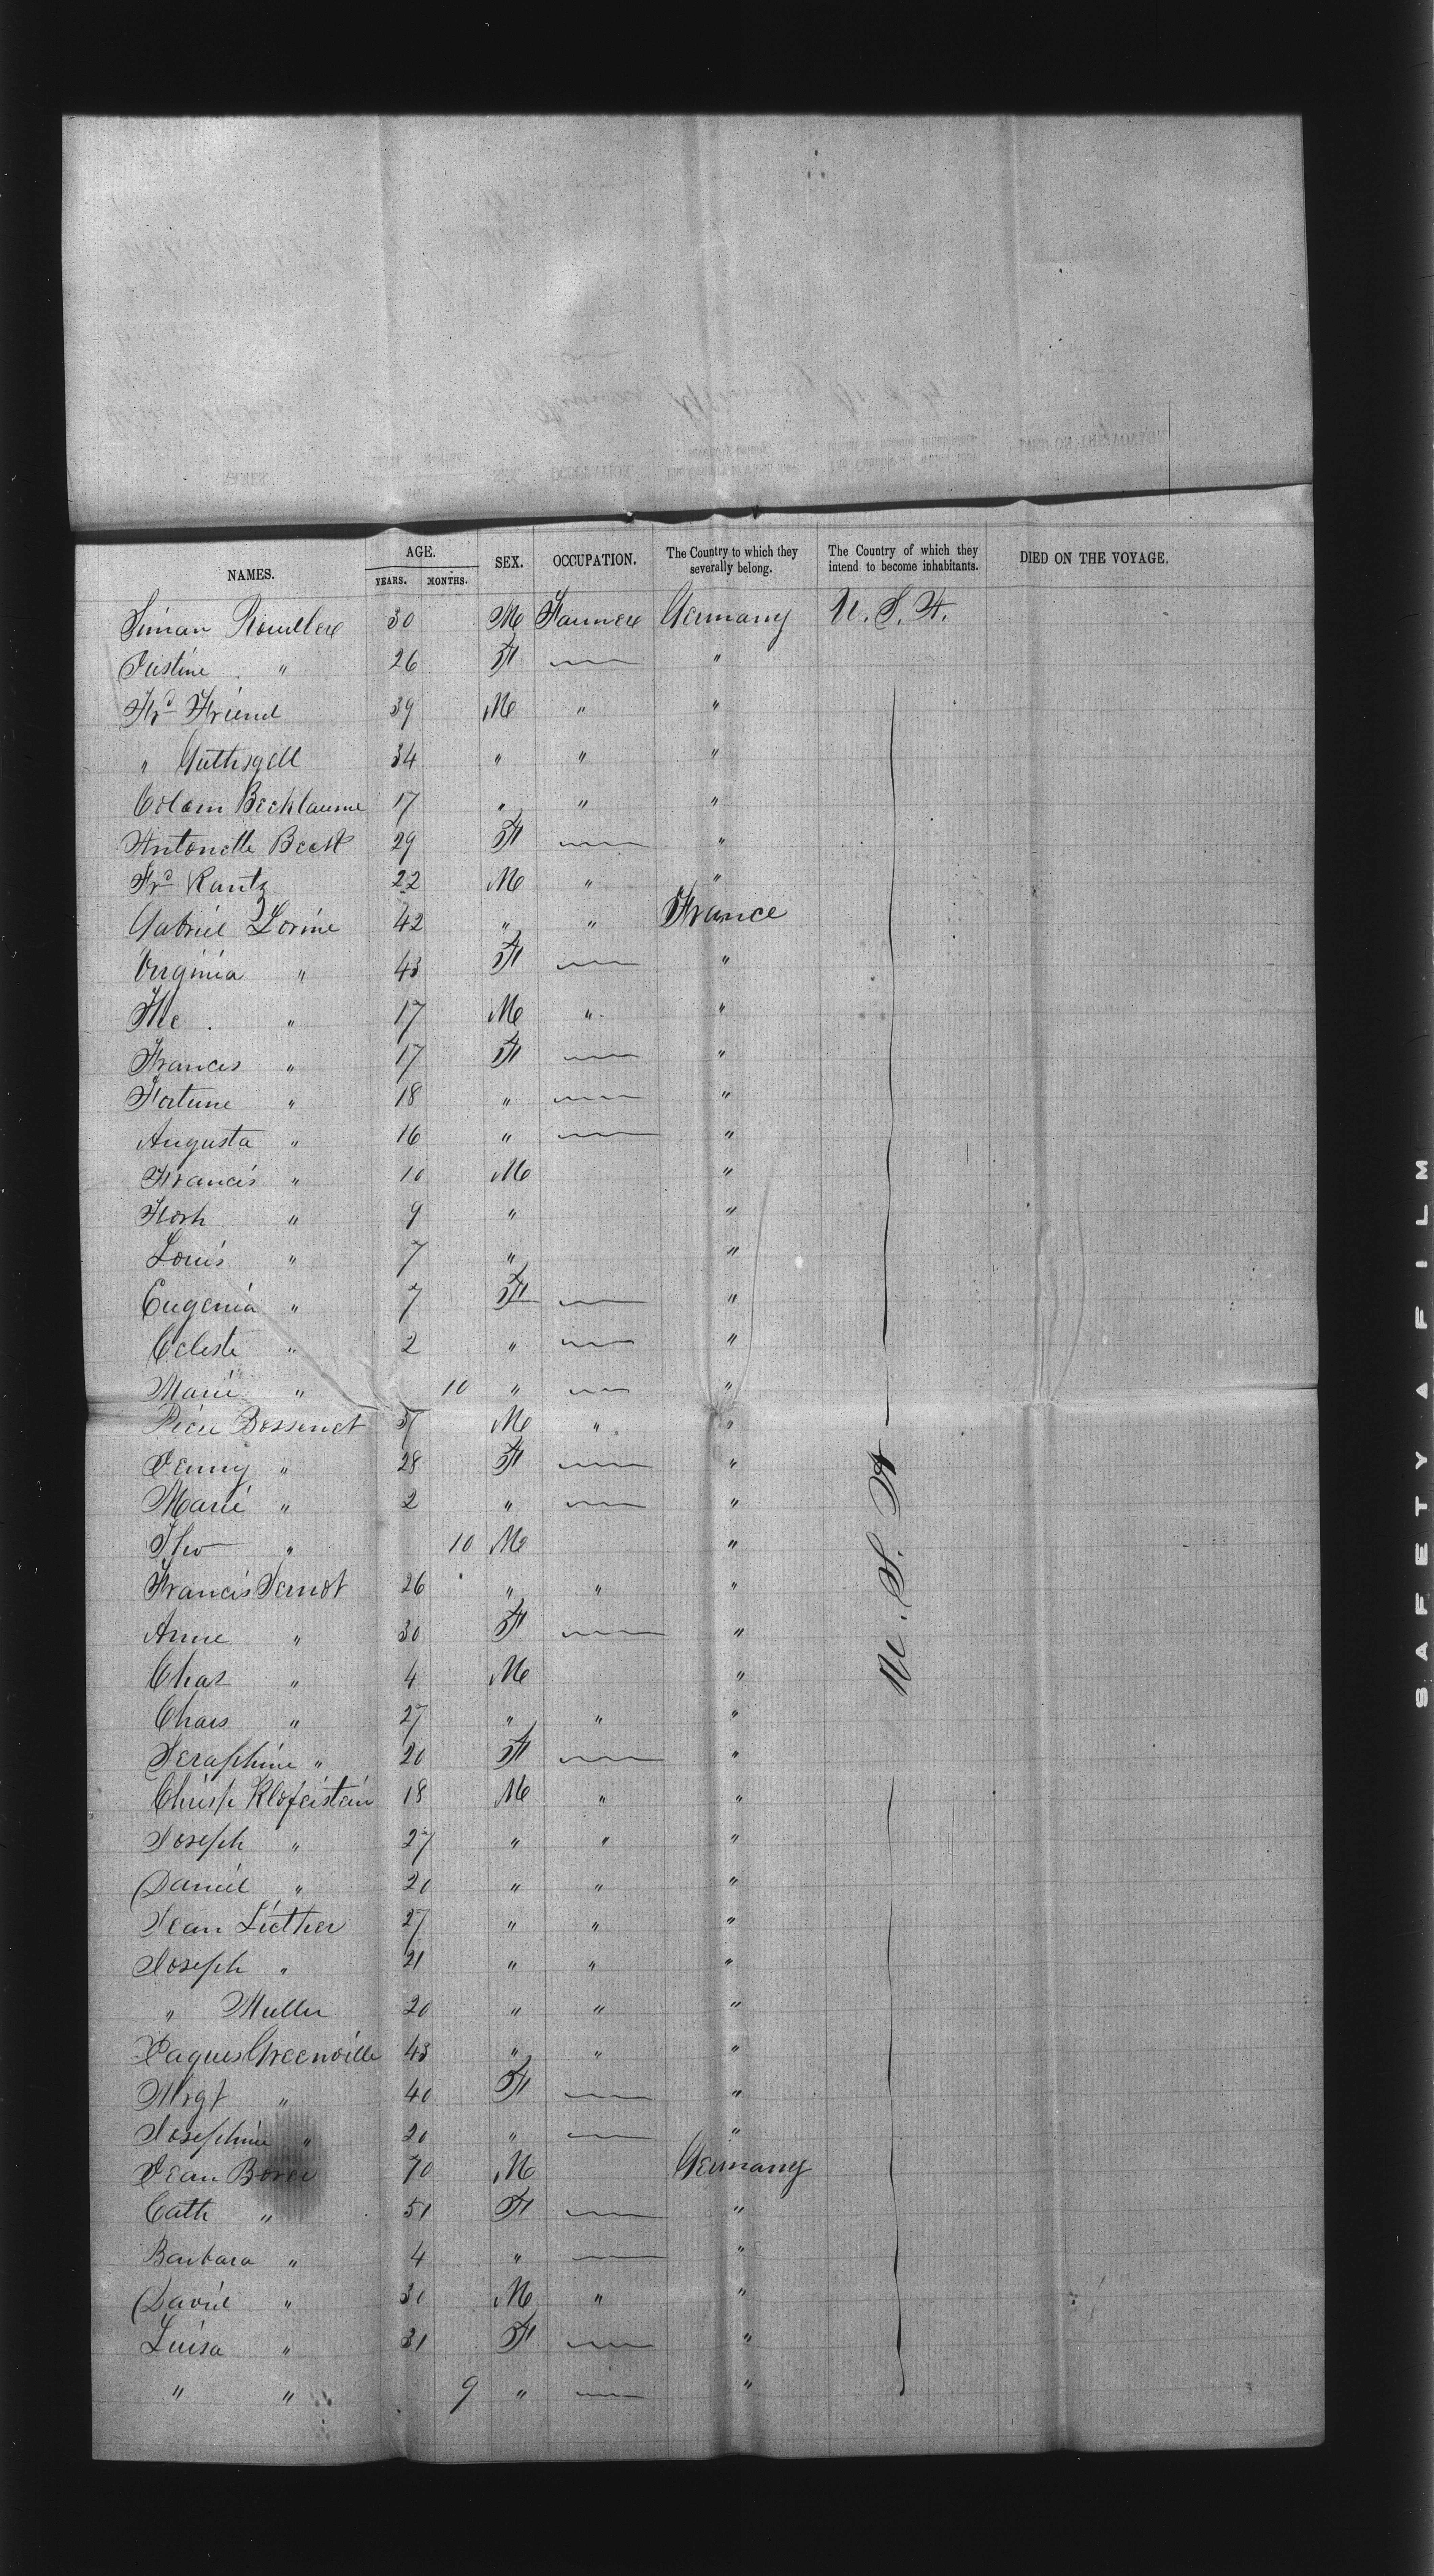 NAMES. AGE. YEARS. MONTHS. SEX. OCCUPATION. The Country to which they severally belong. The Country of which they intend to become inhabitants. DIED ON THE VOYAGE.
Siman 30 M Farmer Germany U. S. A.
Justine " 26 F "
Frd Friend 39 M " "
" 34 " " "
17 " " "
Antonette Becht 29 F "
Frd Rantz 22 M " "
Gabriel Lorine 42 " " France
Virginia " 43 F "
The " 17 M " "
Frances " 17 F "
Fortune " 18 " "
Augusta " 16 " "
Francis " 10 M "
" 9 " "
Louis " 7 " "
Eugenia " 7 F "
Celeste " 2 " "
Marie " 10 " "
Bessenet 37 M " "
Jenny " 28 F "
Marie " 2 " "
Theo " 10 M "
Francis Pernot 26 " " "
Anne " 30 F "
Chas " 4 M " U. S. A
Chars " 27 " " "
Seraphine " 20 F "
Christ Klofeistein 18 M " "
Joseph " 27 " " "
Daniel " 20 " " "
Jean Liether 27 " " "
Joseph " 21 " " "
" Muller 20 " " "
Jaques Greenville 43 " " "
Mrgt " 40 F "
Josephine " 20 " "
Jean 70 M Germany
Cath " 51 F "
Barbara " 4 " "
David " 30 M " "
Luisa " 31 F "
" " 9 " "
SAFETY A FILM